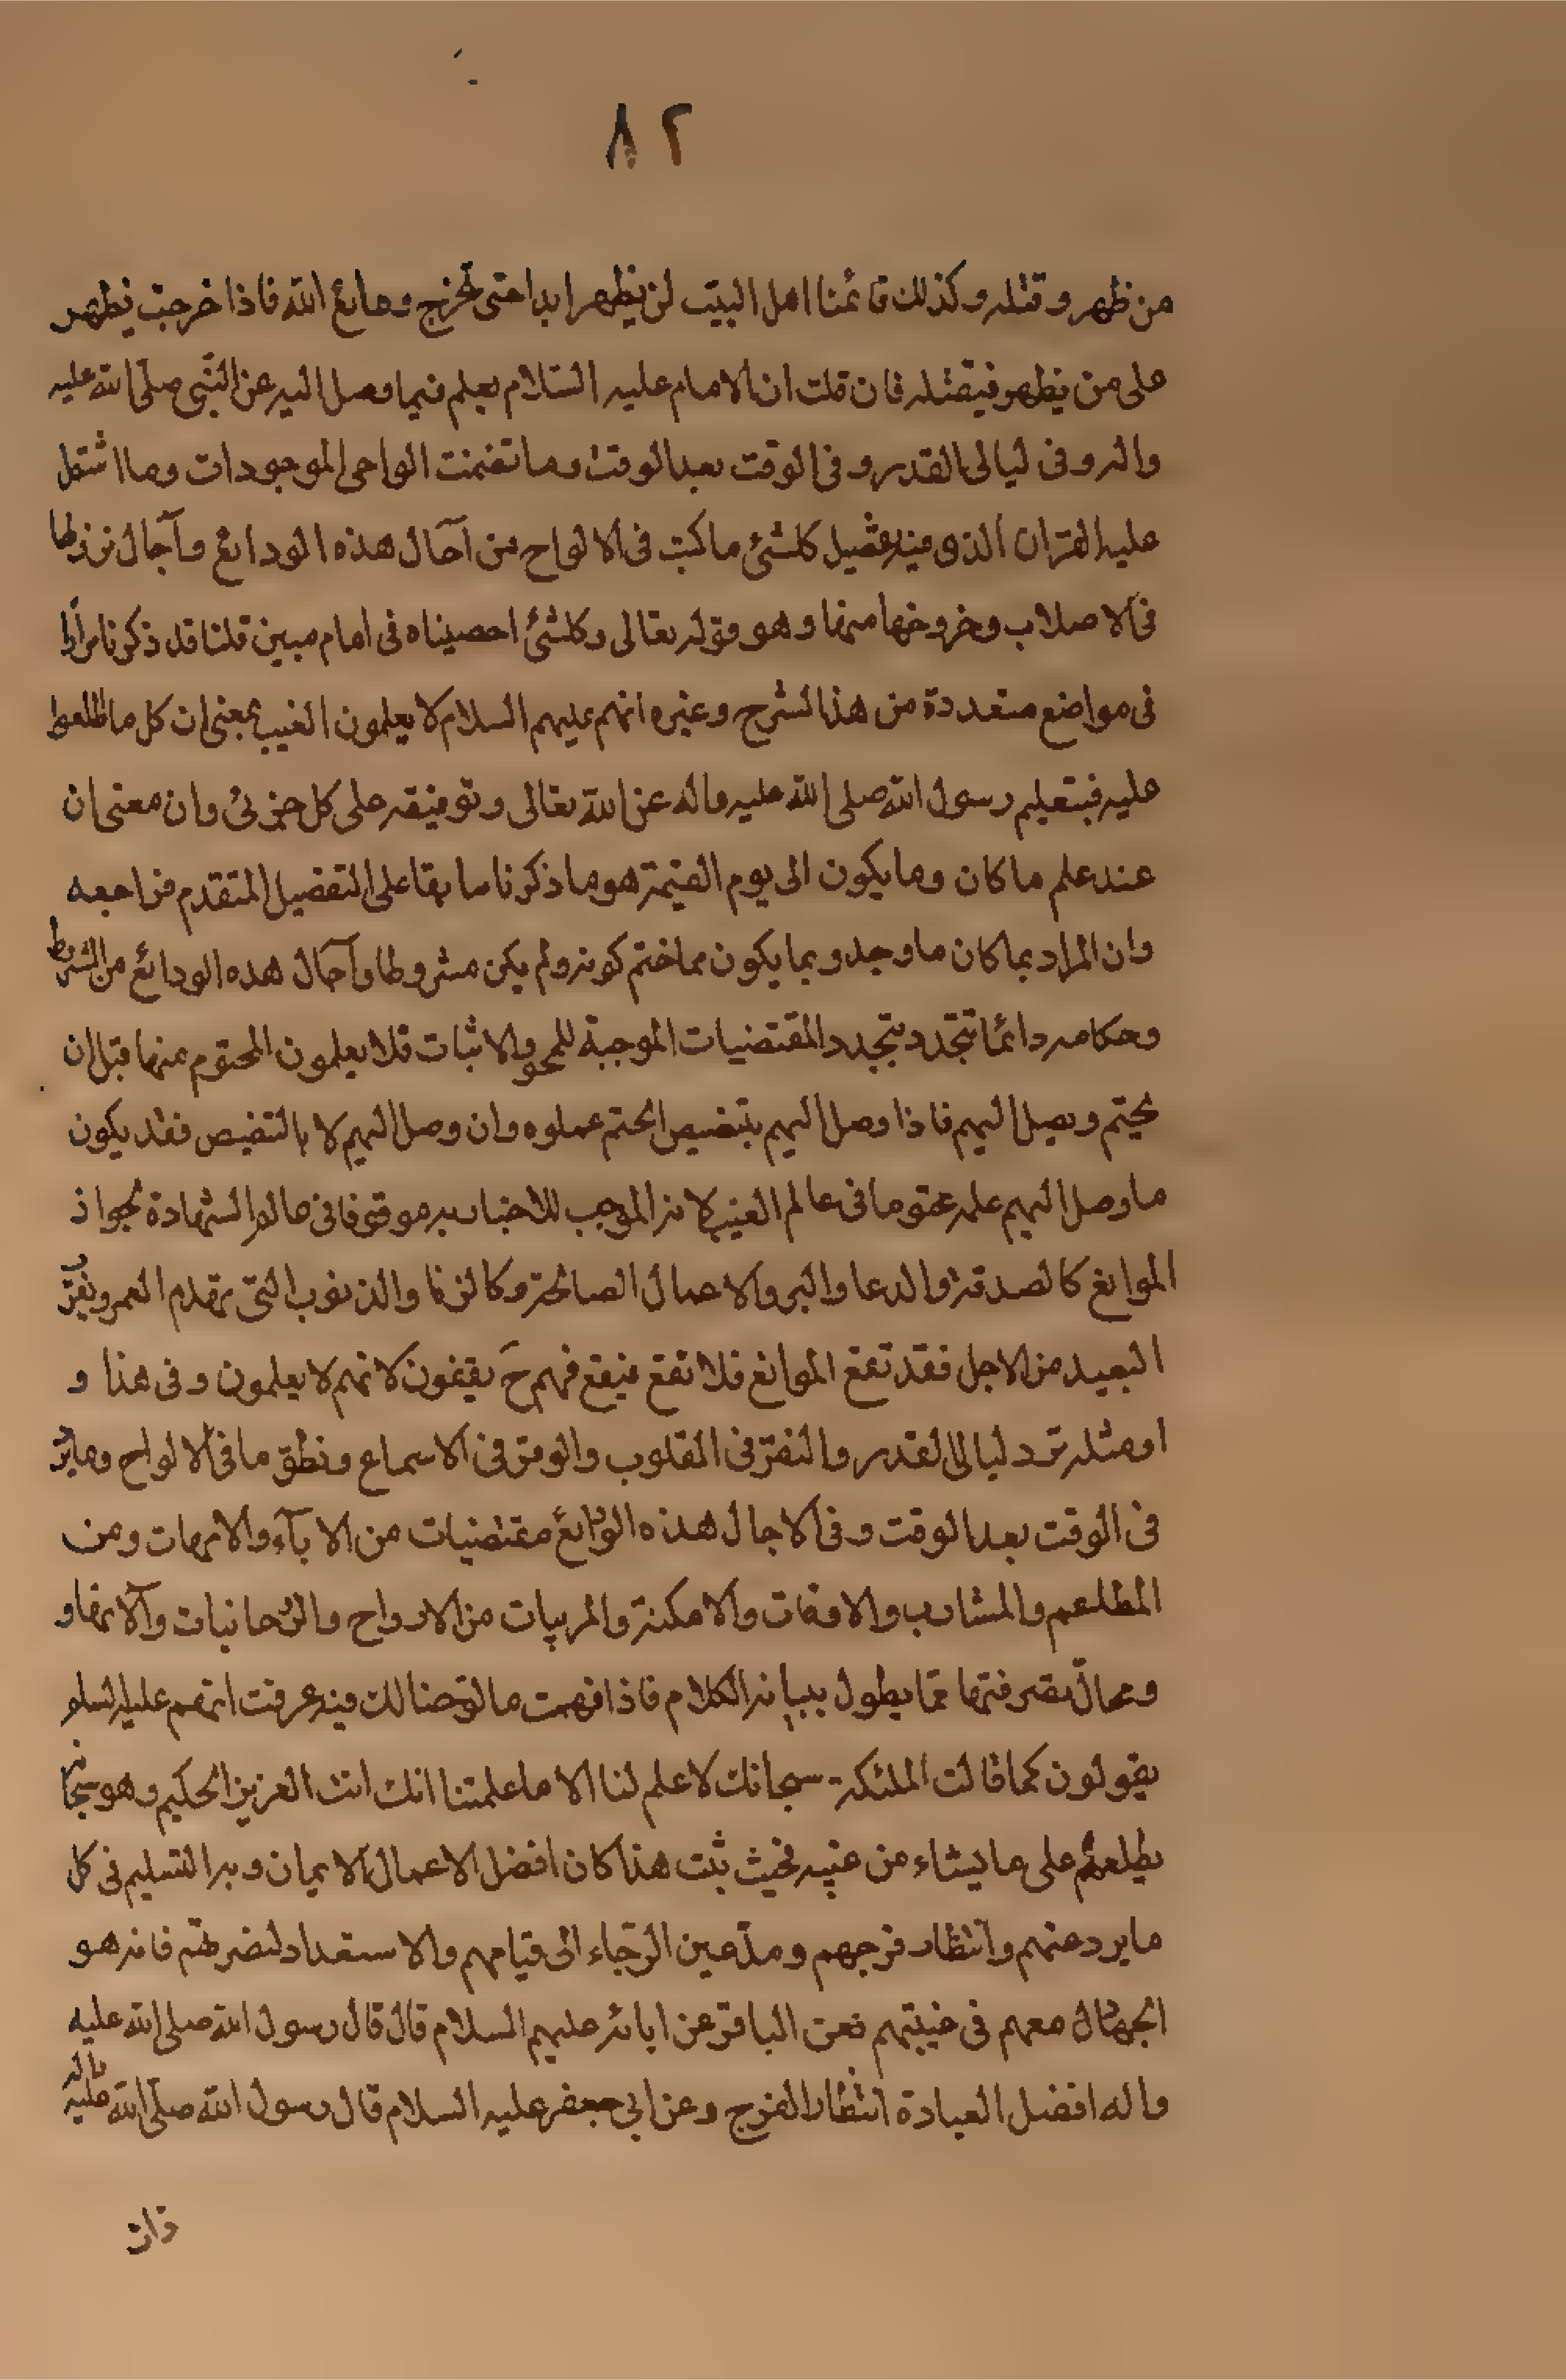 ٨٢
من ظهر وقتله وكذلك قائمنا اهل البيت لن يظهر ابدا حتى تخرج ودايع الله فاذا خرجت يظهر
على من يظهر فيقتله فان قلت ان الامام عليه السّلام يعلم فيما وصل اليه عن النّبي صلّى الله عليه
واله وفى ليالى القدر وفى الوقت بعد الوقت وما تضمنت الواحى الموجودات وما اشتمل
عليه القران الذى فيه تفصيل كلشئ ما كتب فى الالواح من آجال هذه الودايع وآجال نزولها
فى الاصلاب وخروجها منها وهو قوله تعالى وكلشئ احصيناه فى امام مبين قلنا قد ذكرنا مرارا
فى مواضع متعددة من هذا الشرح وغيره انهم عليهم السلام لا يعلمون الغيب بمعنى ان كل ما اطلعوا
عليه فبتعليم رسول الله صلى الله عليه واله عن الله تعالى وتوفيقه على كل جزوئى وان معنى ان
عنده علم ما كان وما يكون الى يوم القيمة هو ما ذكرنا سابقا على التفصيل المتقدم فراجعه
وان المراد بما كان ما وجد وبما يكون مما ختم كونه ولم يكن مشروطا وآجال هذه الودائع من المشروط
وحكامه دائما تتجدد بتجدد المقتضيات الموجبة للمحو والاثبات فلا يعلمون المحتوم منها قبل ان
يحتم ويصل اليهم فاذا وصل اليهم بتنصيص الحتم عملوه وان وصل اليهم لا بالتنصيص فقد يكون
ما وصل اليهم علمه محتوما فى عالم الغيب لانه الموجب للاخبار به موقوفا فى عالم الشهادة لجواز
الموانع كالصدقة والدعا والبر والاعمال الصالحة وكالزنا والذنوب التى تهدم العمر وتقرب
البعيد من الاجل فقد تقع الموانع فلا تقع فيقع فهم ح يقفون لانهم لا يعلمون وفى هذا و
امثله ترد ليالى القدر والنقر فى القلوب والوقر فى الاسماع ونطق ما فى الالواح وما
فى الوقت بعد الوقت وفى الاجال هذه الودائع مقتضيات من الابآء والامهات ومن
المطاعم والمشارب والاوقات والامكنة والمربيات من الارواح والروحانيات وآلاتها و
ومحالّ تصرفتها مما يطول ببيانه الكلام فاذا فهمت ما لوّحنا لك فيه عرفت انهم عليهم السلم
يقولون كما قالت الملئكة سبحانك لا علم لنا الا ما علمتنا انك انت العزيز الحكيم وهو سبحانه
يطلعهم على ما يشاء من غيبه فحيث ثبت هذا كان افضل الاعمال الايمان وبه التسليم فى كل
ما يرد عنهم وانتظار فرجهم ومدّ عين الرّجاء الى قيامهم والاستعداد لنصرتهم فانه هو
الجهاد معهم فى غيبتهم فعن الباقر عن ابائه عليهم السلام قال قال رسول الله صلى الله عليه
واله افضل العبادة انتظار الفرج وعن ابي جعفر عليه السلام قال رسول الله صلّى الله عليه واله
ذات